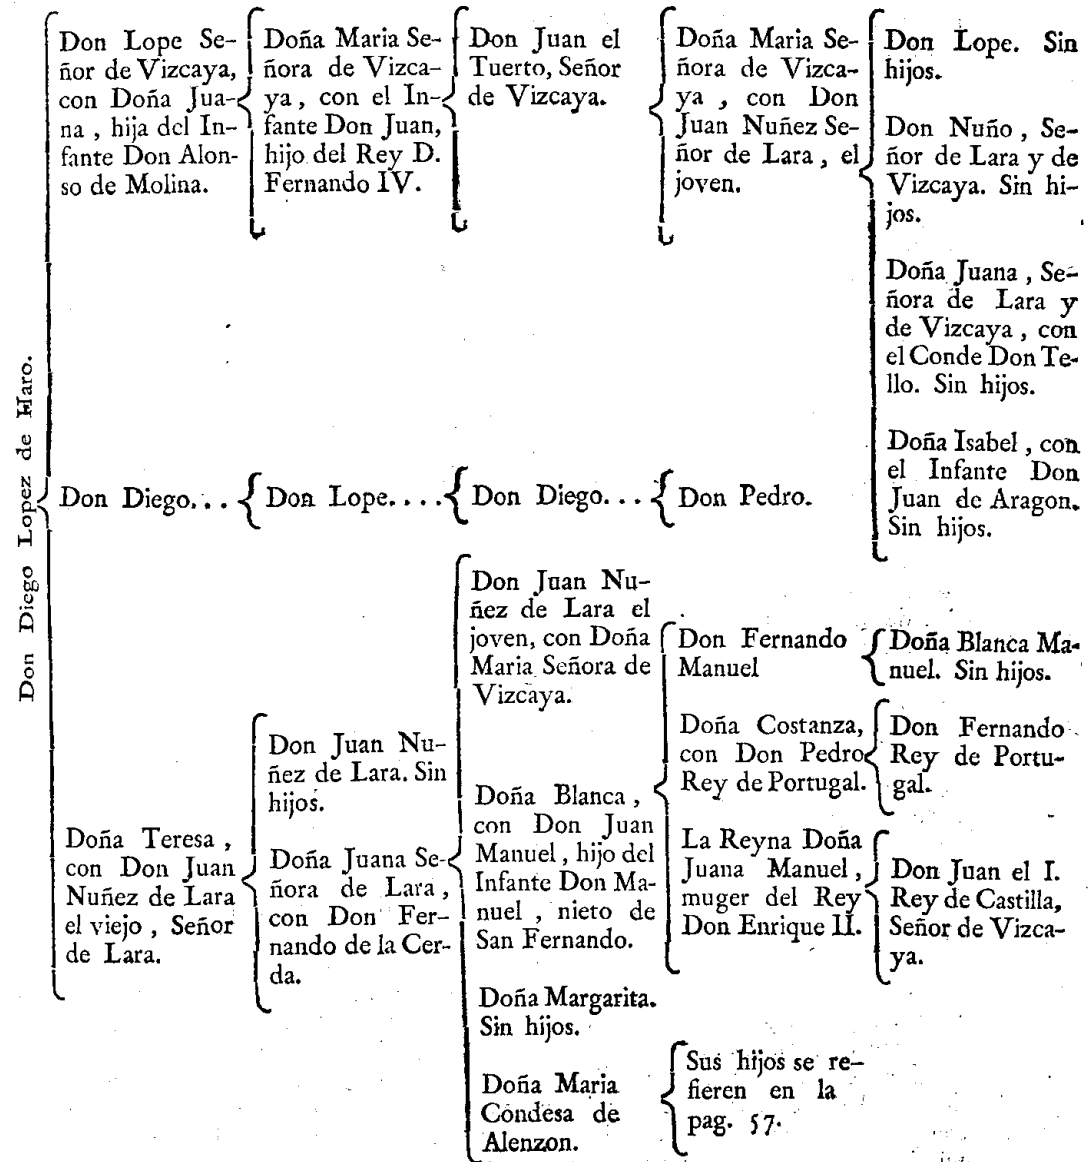 Don Diego Lopez de Haro.
Don Lope Se-
ñor de Vizcaya,
con Doña Jua-
na , hija del In-
fante Don Alon-
so de Molina.
Doña Maria Se-
ñora de Vizca-
ya , con el In-
fante Don Juan,
hijo del Rey D.
Fernando IV.
Don Juan el
Tuerto, Señor
de Vizcaya.
Doña Maria Se-
ñora de Vizca-
ya , con Don
Juan Nuñez Se-
ñor de Lara , el
joven.
Don Lope. Sin
hijos.
Don Nuño , Se-
ñor de Lara y de
Vizcaya. Sin hi-
jos.
Doña Juana , Se-
ñora de Lara y
de Vizcaya , con
el Conde Don Te-
llo. Sin hijos.
Doña Isabel , con
el Infante Don
Juan de Aragon.
Sin hijos.
Don Diego...
Don Lope....
Don Diego...
Don Pedro.
Doña Teresa ,
con Don Juan
Nuñez de Lara
el viejo , Señor
de Lara.
Don Juan Nu-
ñez de Lara. Sin
hijos.
Doña Juana Se-
ñora de Lara ,
con Don Fer-
nando de la Cer-
da.
Don Juan Nu-
ñez de Lara el
joven, con Doña
Maria Señora de
Vizcaya.
Doña Blanca ,
con Don Juan
Manuel , hijo del
Infante Don Ma-
nuel , nieto de
San Fernando.
Doña Margarita.
Sin hijos.
Doña Maria
Condesa de
Alenzon.
Don Fernando
Manuel
Doña Costanza,
con Don Pedro
Rey de Portugal.
La Reyna Doña
Juana Manuel ,
muger del Rey
Don Enrique II.
Sus hijos se re-
fieren en la
pag. 57.
Doña Blanca Ma-
nuel. Sin hijos.
Don Fernando
Rey de Portu-
gal.
Don Juan el I.
Rey de Castilla,
Señor de Vizca-
ya.